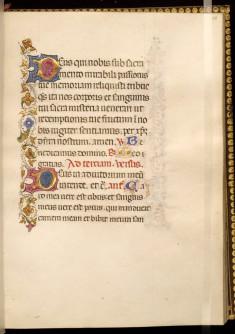 Deus qui nobis sub sacra
mento mirabili passionis
tue memoriam reliquisti tribue
qs ita nos corporis et sanguinis
tui sacra misteria venerari ut
redemptionis tue fructum i no
bis iugiter sentiamus. per xpm
dnm nostrum. amen. V Be
nedicamus domino. R Deo
gratias. Ad tertiam. versus.
Deus in adiutorium meum
intende. et c̄. ant. Ca
ro mea vere est cibus et sanguis
meus vere est potus. qui manducat
carnem meam et bibit meum san